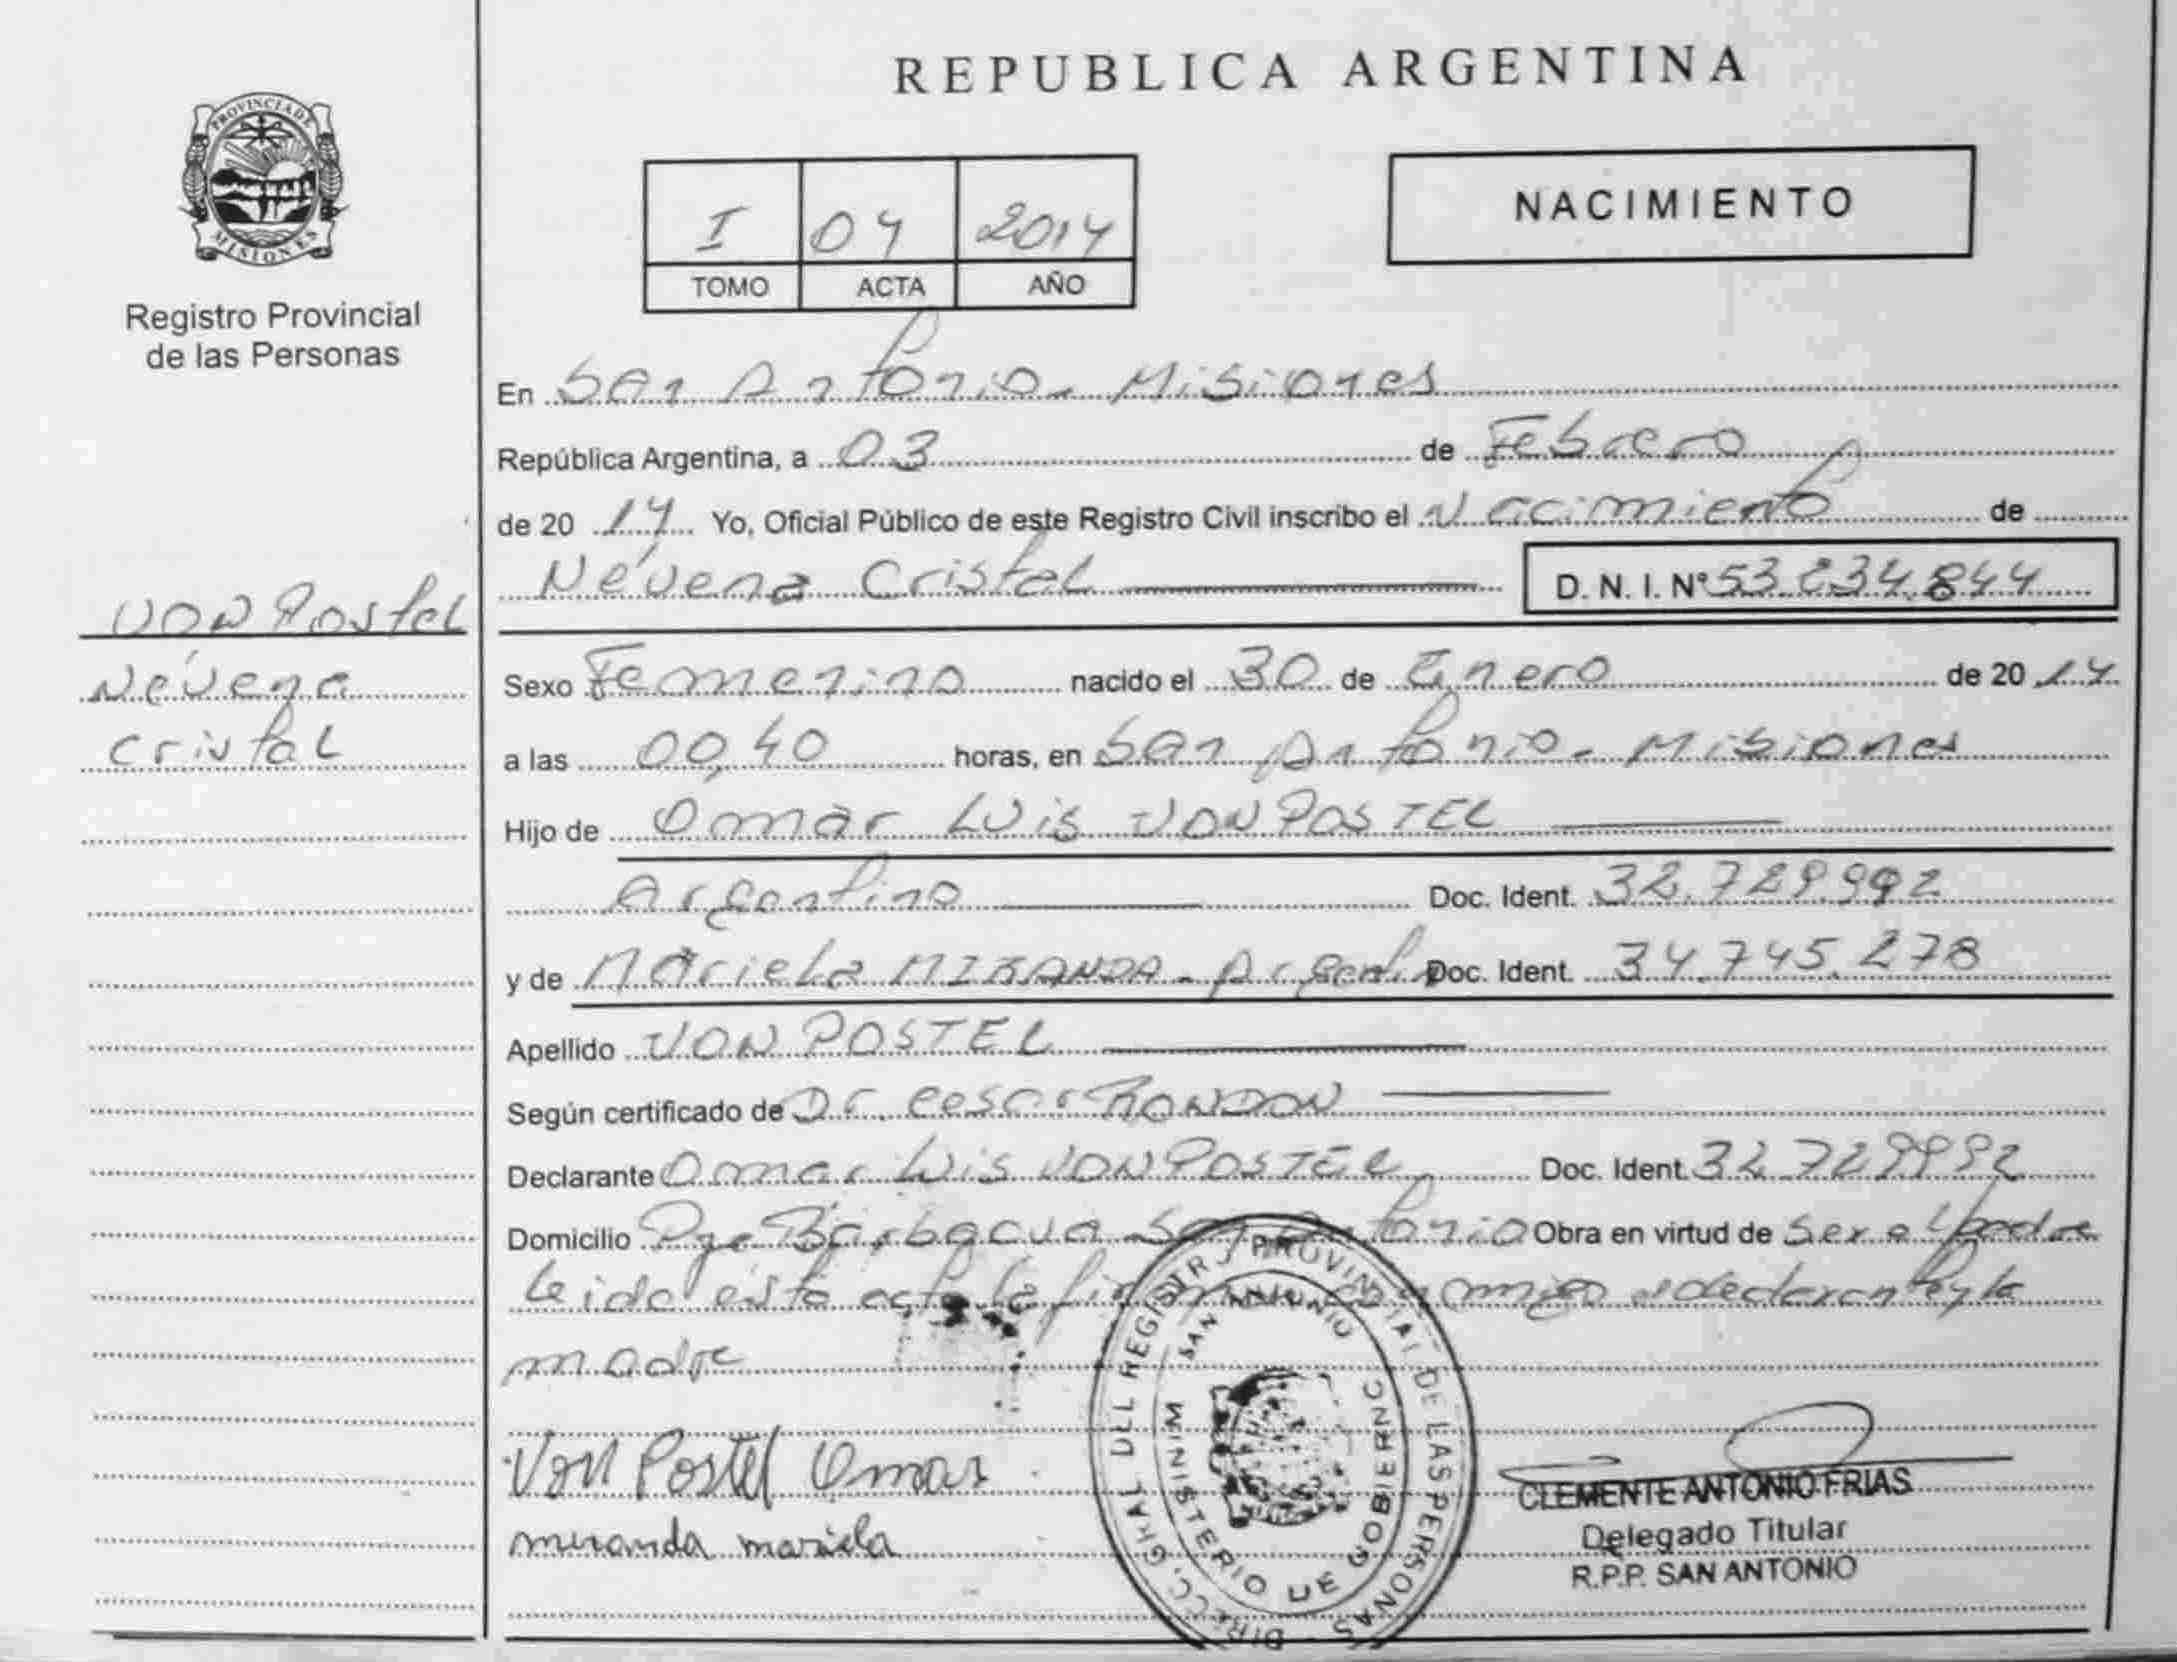 REPUBLICA ARGENTINA
PROVINCIA DE
MISIONES
Registro Provincial
de las Personas
I 04 2014
TOMO ACTA AÑO
NACIMIENTO
En San Antonio - Misiones
República Argentina, a 03 de Febrero
de 20 14 Yo, Oficial Público de este Registro Civil inscribo el Nacimiento de
Névena Cristel D. N. I. Nº 53.234.844
VON Postel
Névena
Cristel
Sexo Femenino nacido el 30 de Enero de 20 14
a las 00,40 horas, en San Antonio - Misiones
Hijo de Omar Luis VON POSTEL
Argentino Doc. Ident. 32.729.992
y de Mariela MIRANDA - Argentin Doc. Ident. 34.745.278
Apellido VON POSTEL
Según certificado de Dr. Cesar RONDON
Declarante Omar Luis VON POSTEL Doc. Ident. 32.729992
Domicilio Pje Barbacua San Antonio Obra en virtud de ser el padre
Leida esta acta la firman conmigo el declarante y la
madre
Von Postel Omar
miranda mariela
DIRECC. GRAL DEL REGISTRO PROVINCIAL DE LAS PERSONAS
SAN ANTONIO
MINISTERIO DE GOBIERNO
CLEMENTE ANTONIO FRIAS
Delegado Titular
R.P.P. SAN ANTONIO